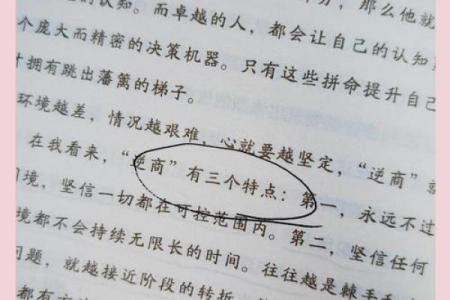 的认知。而卓越的人，都会让自己的认知
个庞大而精密的决策机器。只有这些拼命提升自己
才拥有跳出藩篱的梯子。
环境越差，情况越艰难，心就要越坚定，“逆商”就
在我看来，“逆商”有三个特点：第一，永远不过
困境，坚信一切都在可控范围内。第二，坚信任何
境都不会持续无限长的时间。往往越是棘手
问题，就越接近阶段的转折